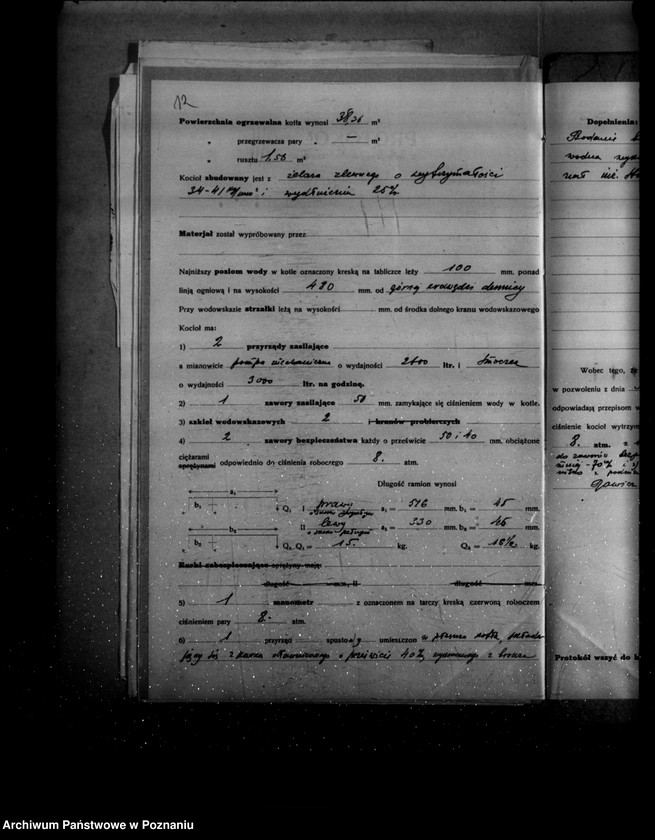 12
Powierzchnia ogrzewalna kotła wynosi 38,36 m²
" przegrzewacza pary " — m²
" rusztu 1,56 m²
Kocioł zbudowany jest z żelaza zlewnego o wytrzymałości
34-41 kg/mm² i wydłużeniu 25%
Materjał został wypróbowany przez
Najniższy poziom wody w kotle oznaczony kreską na tabliczce leży 100 mm. ponad
linją ogniową i na wysokości 480 mm. od górnej krawędzi dennicy
Przy wodowskazie strzałki leżą na wysokości mm. od środka dolnego kranu wodowskazowego
Kocioł ma:
1) 2 przyrządy zasilające
a mianowicie pompa mechaniczna o wydajności 2400 ltr. i Smoczek
o wydajności 3000 ltr. na godzinę.
2) 1 zawory zasilające 50 mm. zamykające się ciśnieniem wody w kotle.
3) szkieł wodowskazowych 2 i kranów probierczych
4) 2 zawory bezpieczeństwa każdy o prześwicie 50 i 40 mm. obciążone
ciężarami
sprężynami odpowiednio do ciśnienia roboczego 8. atm.
Długość ramion wynosi
a₁
b₁ Q₁ I prawy a₁ = 516 mm. b₁ = 45 mm.
b₂ II lewy a₂ = 330 mm. b₂ = 45 mm.
Q₂ Q₁ = 15. kg. Q₂ = 18½ kg.
Rurki zabezpieczające sprężyny mają:
długość mm, II długość mm.
5) 1 manometr z oznaczonem na tarczy kreską czerwoną roboczem
ciśnieniem pary 8. atm.
6) 1 przyrząd sposto umieszczon w
z kurka o prześwicie 40
Dopełnienia:
Podanie
wodna
Wobec tego, że
w pozwoleniu z dnia
odpowiadają przepisom w
ciśnienie kocioł wytrzym
8. atm. z
do zaworów bezp
Protokół wszyć do k
Archiwum Państwowe w Poznaniu